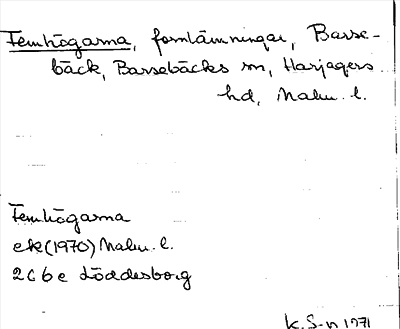 Femhögarna, fornlämningar, Barse-
bäck, Barsebäcks sn, Harjagers
hd, Malm. l.
Femhögarna
ek (1970) Malm. l.
2C6e Löddesborg
K.S-n 1971